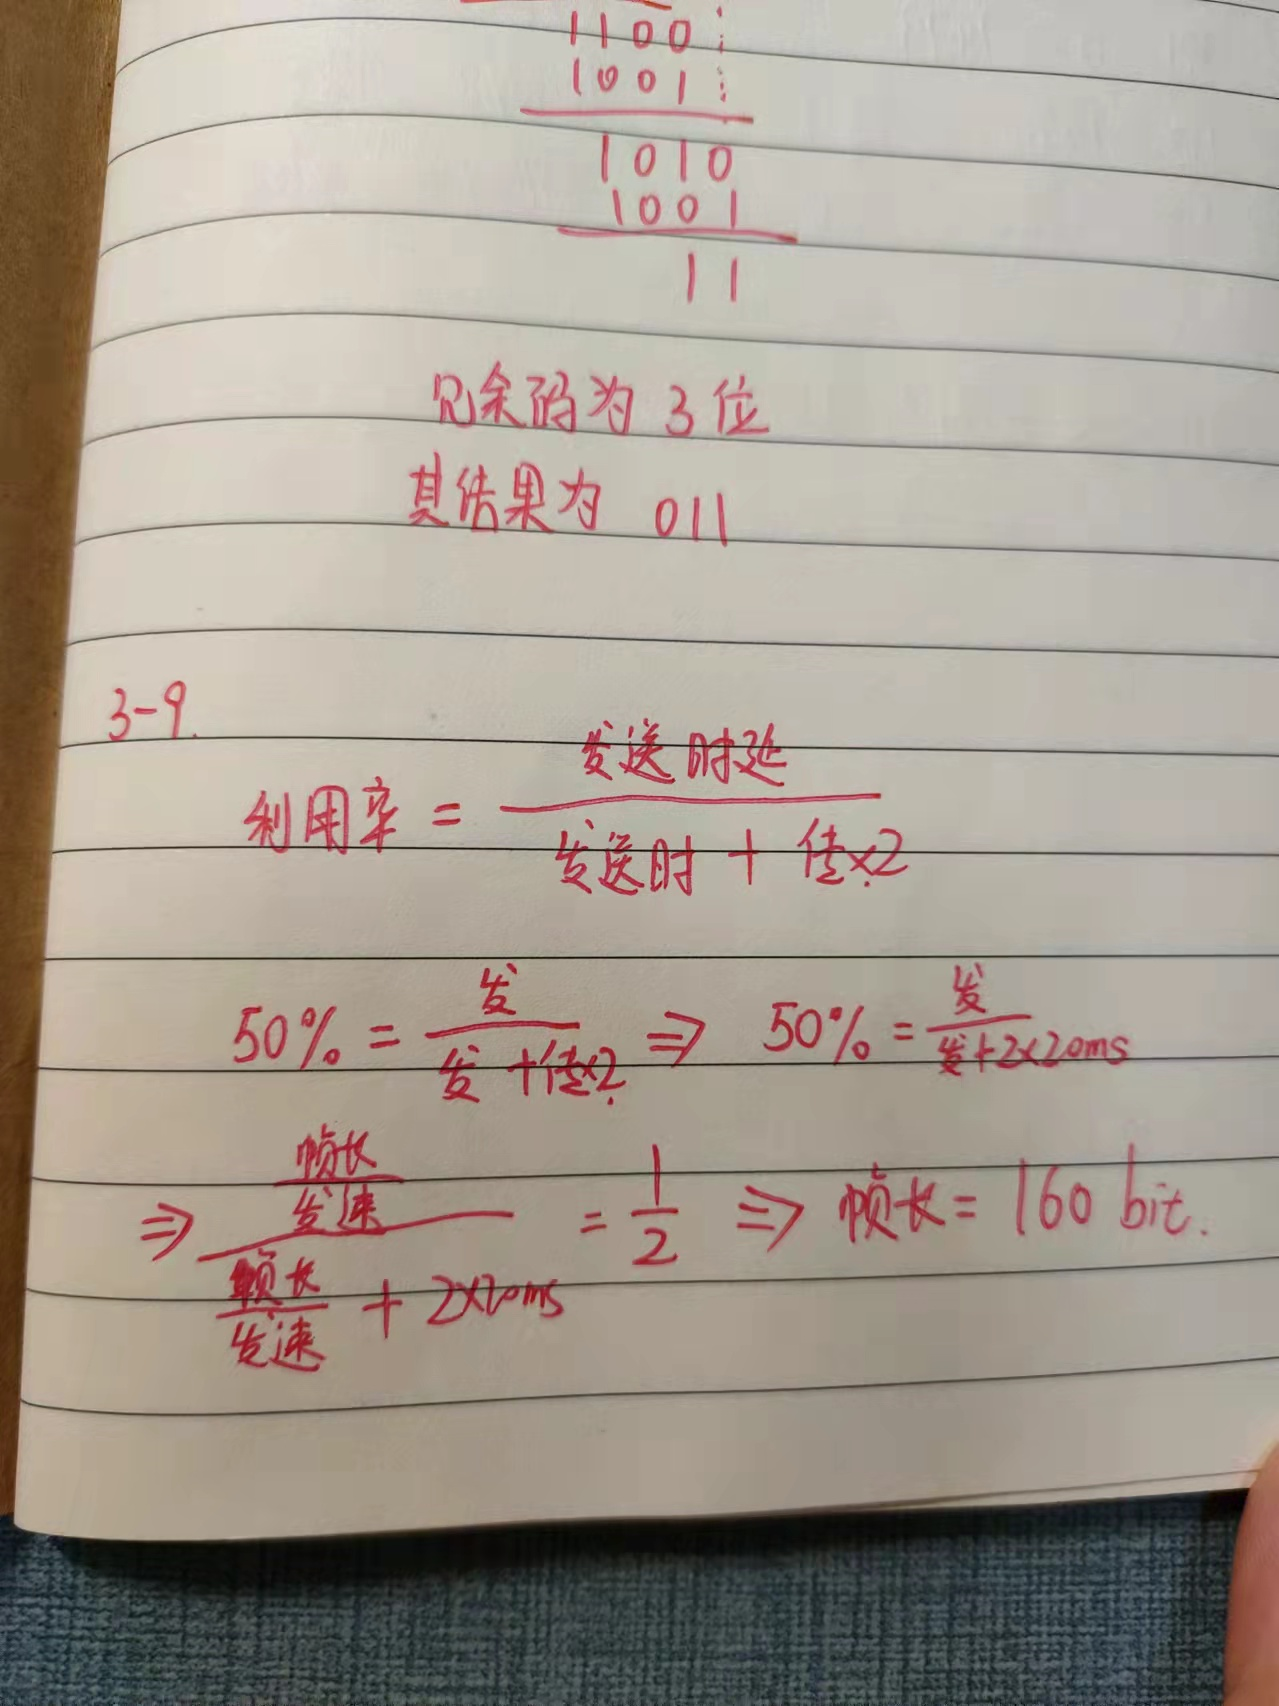 1100
1001
1010
1001
11
冗余码为 3 位
其结果为 011
3-9.
利用率 = 发送时延 / 发送时 + 传×2
50% = 发 / 发 + 传×2 ⇒ 50% = 发 / 发+2×20ms
⇒ 帧长/发速 / 帧长/发速 + 2×20ms = 1/2 ⇒ 帧长 = 160 bit.